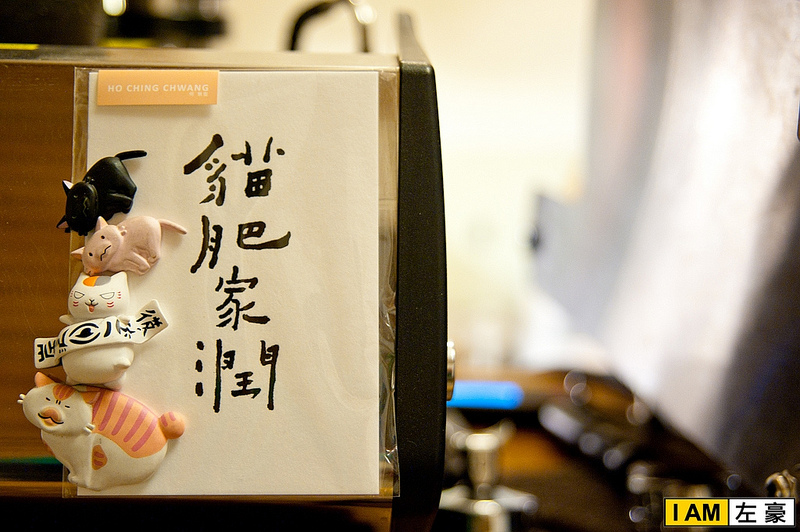 HO CHING CHWANG
貓肥家潤
I AM 左豪